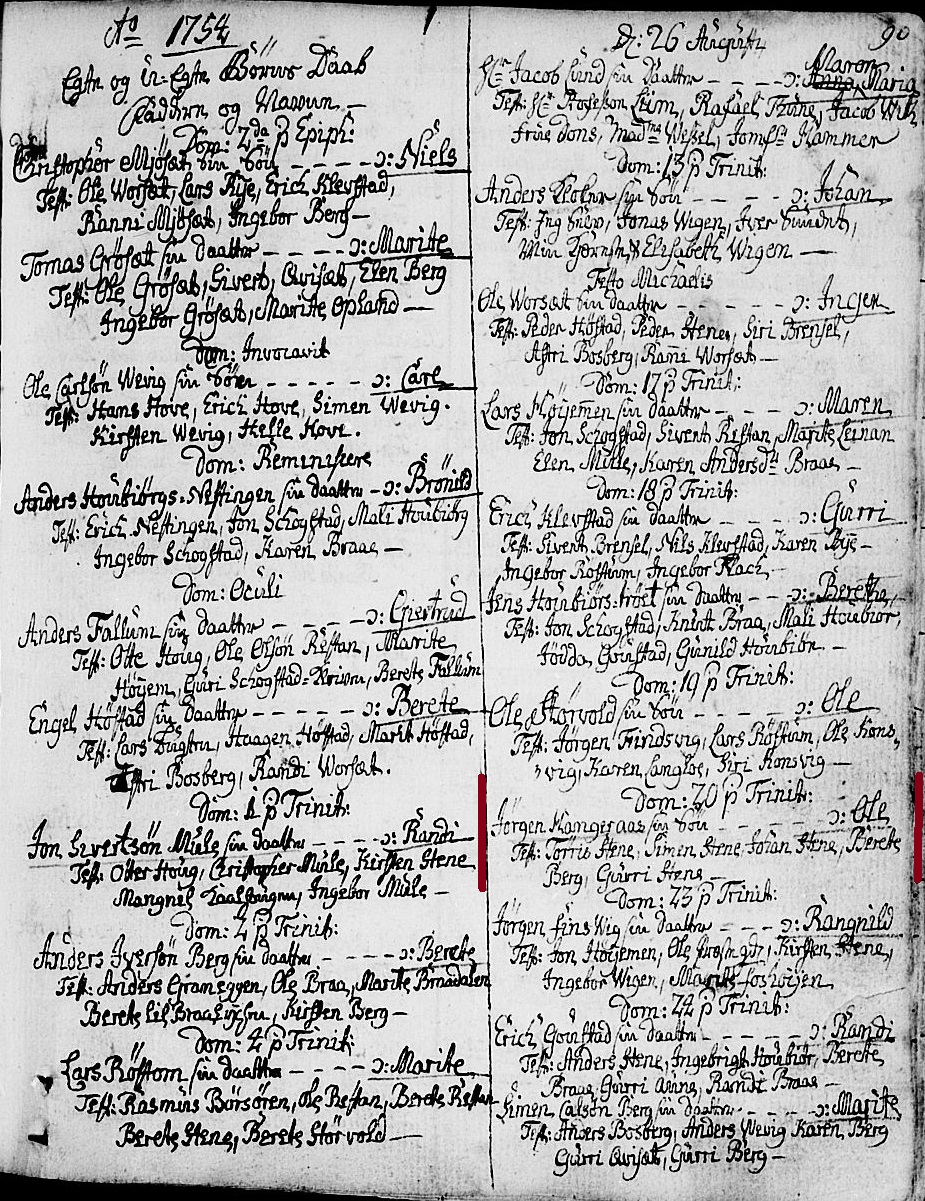 Aº 1754
Egte og U=Egte Börns Daab
Stadsbn og Navne
Dom: 2da p Epiph:
Christopher Mjösæt sin Sön - - - - ɔ: Niels
Test: Ole Worsæt, Lars Rÿe, Erich Klefstad,
Ranni Mjösæt, Ingebor Berg
Tomas Grösæt sin daatter - - - - ɔ: Marite
Test: Ole Grösæt, Sivert Qvisæt, Elen Berg
Ingebor Grösæt, Marite Opland
Dom: Invocavit
Ole Carlsön Wevig sin Sön - - - - - ɔ: Carl
Test: Hans Hove, Erich Hove, Simen Wevig.
Kirsten Wevig, Helle Hove.
Dom: Reminisere
Anders Houbiörgs=Nestingen sin daatter - ɔ: Brönild
Test: Erich Nestingen, Jon Schogstad, Mali Houbiörg
Ingebor Schogstad, Karen Braae
Dom: Oculi
Anders Fallum sin daatter - - - - - ɔ: Giertrud
Test: Otte Houg, Ole Olsön Restan, Marite
Höyem, Guri Schogstad, Berete Fallum
Engel Höstad sin daatter - - - - - ɔ: Berete
Test: Lars, Haagen Höstad, Marit Höstad,
Astri Bosberg, Randi Worsæt.
Dom: 1 p Trinit:
Jon Sivertsön Mule sin daatter - - - - ɔ: Randi
Test: Otter Houg, Christopher Mule, Kirsten Stene
Mangnel, Ingebor Mule
Dom: 2 p Trinit:
Anders Iversön Berg sin daatter - - - - ɔ: Berete
Test: Anders Gramegyen, Ole Braa, Marite Braadalen
Berete Lil Braa, Kirsten Berg
Dom: 4 p Trinit:
Lars Röstom sin daatter - - - - ɔ: Marite
Test: Rasmus Börsören, Ole Restan, Berete Restan
Berete Stene, Berete Störvold
D: 26 August
90
Hr Jacob Lund sin daatter - - - - ɔ: Maren Maria
Test: Hr Professor Leim, Rafael, Jacob With
frue Dons, Madme Wessel, Jomfr Hammer
Dom: 13 p Trinit:
Anders sin Sön - - - - - ɔ: Johan
Test: Ing, Jonas Wigen, Iver,
Elisabeth Wigen
Festo Michaelis
Ole Worsæt sin daatter - - - - - - ɔ: Inger
Test: Peder Höstad, Peder Stene, Siri Brensel,
Astri Bosberg, Rani Worsæt
Dom: 17 p Trinit:
Lars Höÿemen sin daatter - - - - ɔ: Maren
Test: Jon Schogstad, Sivert Restan, Marite Leinan
Elen Mule, Karen Andersdtr Braae
Dom: 18 p Trinit:
Erich Klefstad sin daatter - - - - ɔ: Gurri
Test: Sivert Brensel, Nils Klefstad, Karen Rÿe
Ingebor Röstum, Ingebor Flach
Jens Houbiörs=tröet sin daatter - - - ɔ: Berethe
Test: Jon Schogstad, Knut Braa, Mali Houbiör,
Gunild Houbiör
Dom: 19 p Trinit:
Ole Störvold sin Sön - - - - - ɔ: Ole
Test: Jörgen Trindsvig, Lars Röstum, Ole Rons=
=vig, Karen Langloe, Siri Ronsvig
Dom: 20 p Trinit:
Jörgen Mangeraas sin Sön - - - - - ɔ: Ole
Test: Torris Stene, Simen Stene, Johan Stene, Berete
Berg, Gurri Stene
Dom: 23 p Trinit:
Jörgen fins Wig sin daatter - - - ɔ: Rangnild
Test: Jon Höÿemen, Ole, Kirsten Stene,
Ingebor Wigen, Marite
Dom: 24 p Trinit:
Erich Govstad sin daatter - - - - - ɔ: Randi
Test: Anders Stene, Ingebrigt Houbiör, Berete
Braae, Gurri Aune, Randi Braae
Simen Calsön Berg sin daatter - - - - ɔ: Marite
Test: Anders Bosberg, Anders Wevig, Karen Berg
Gurri Qvisæt, Gurri Berg